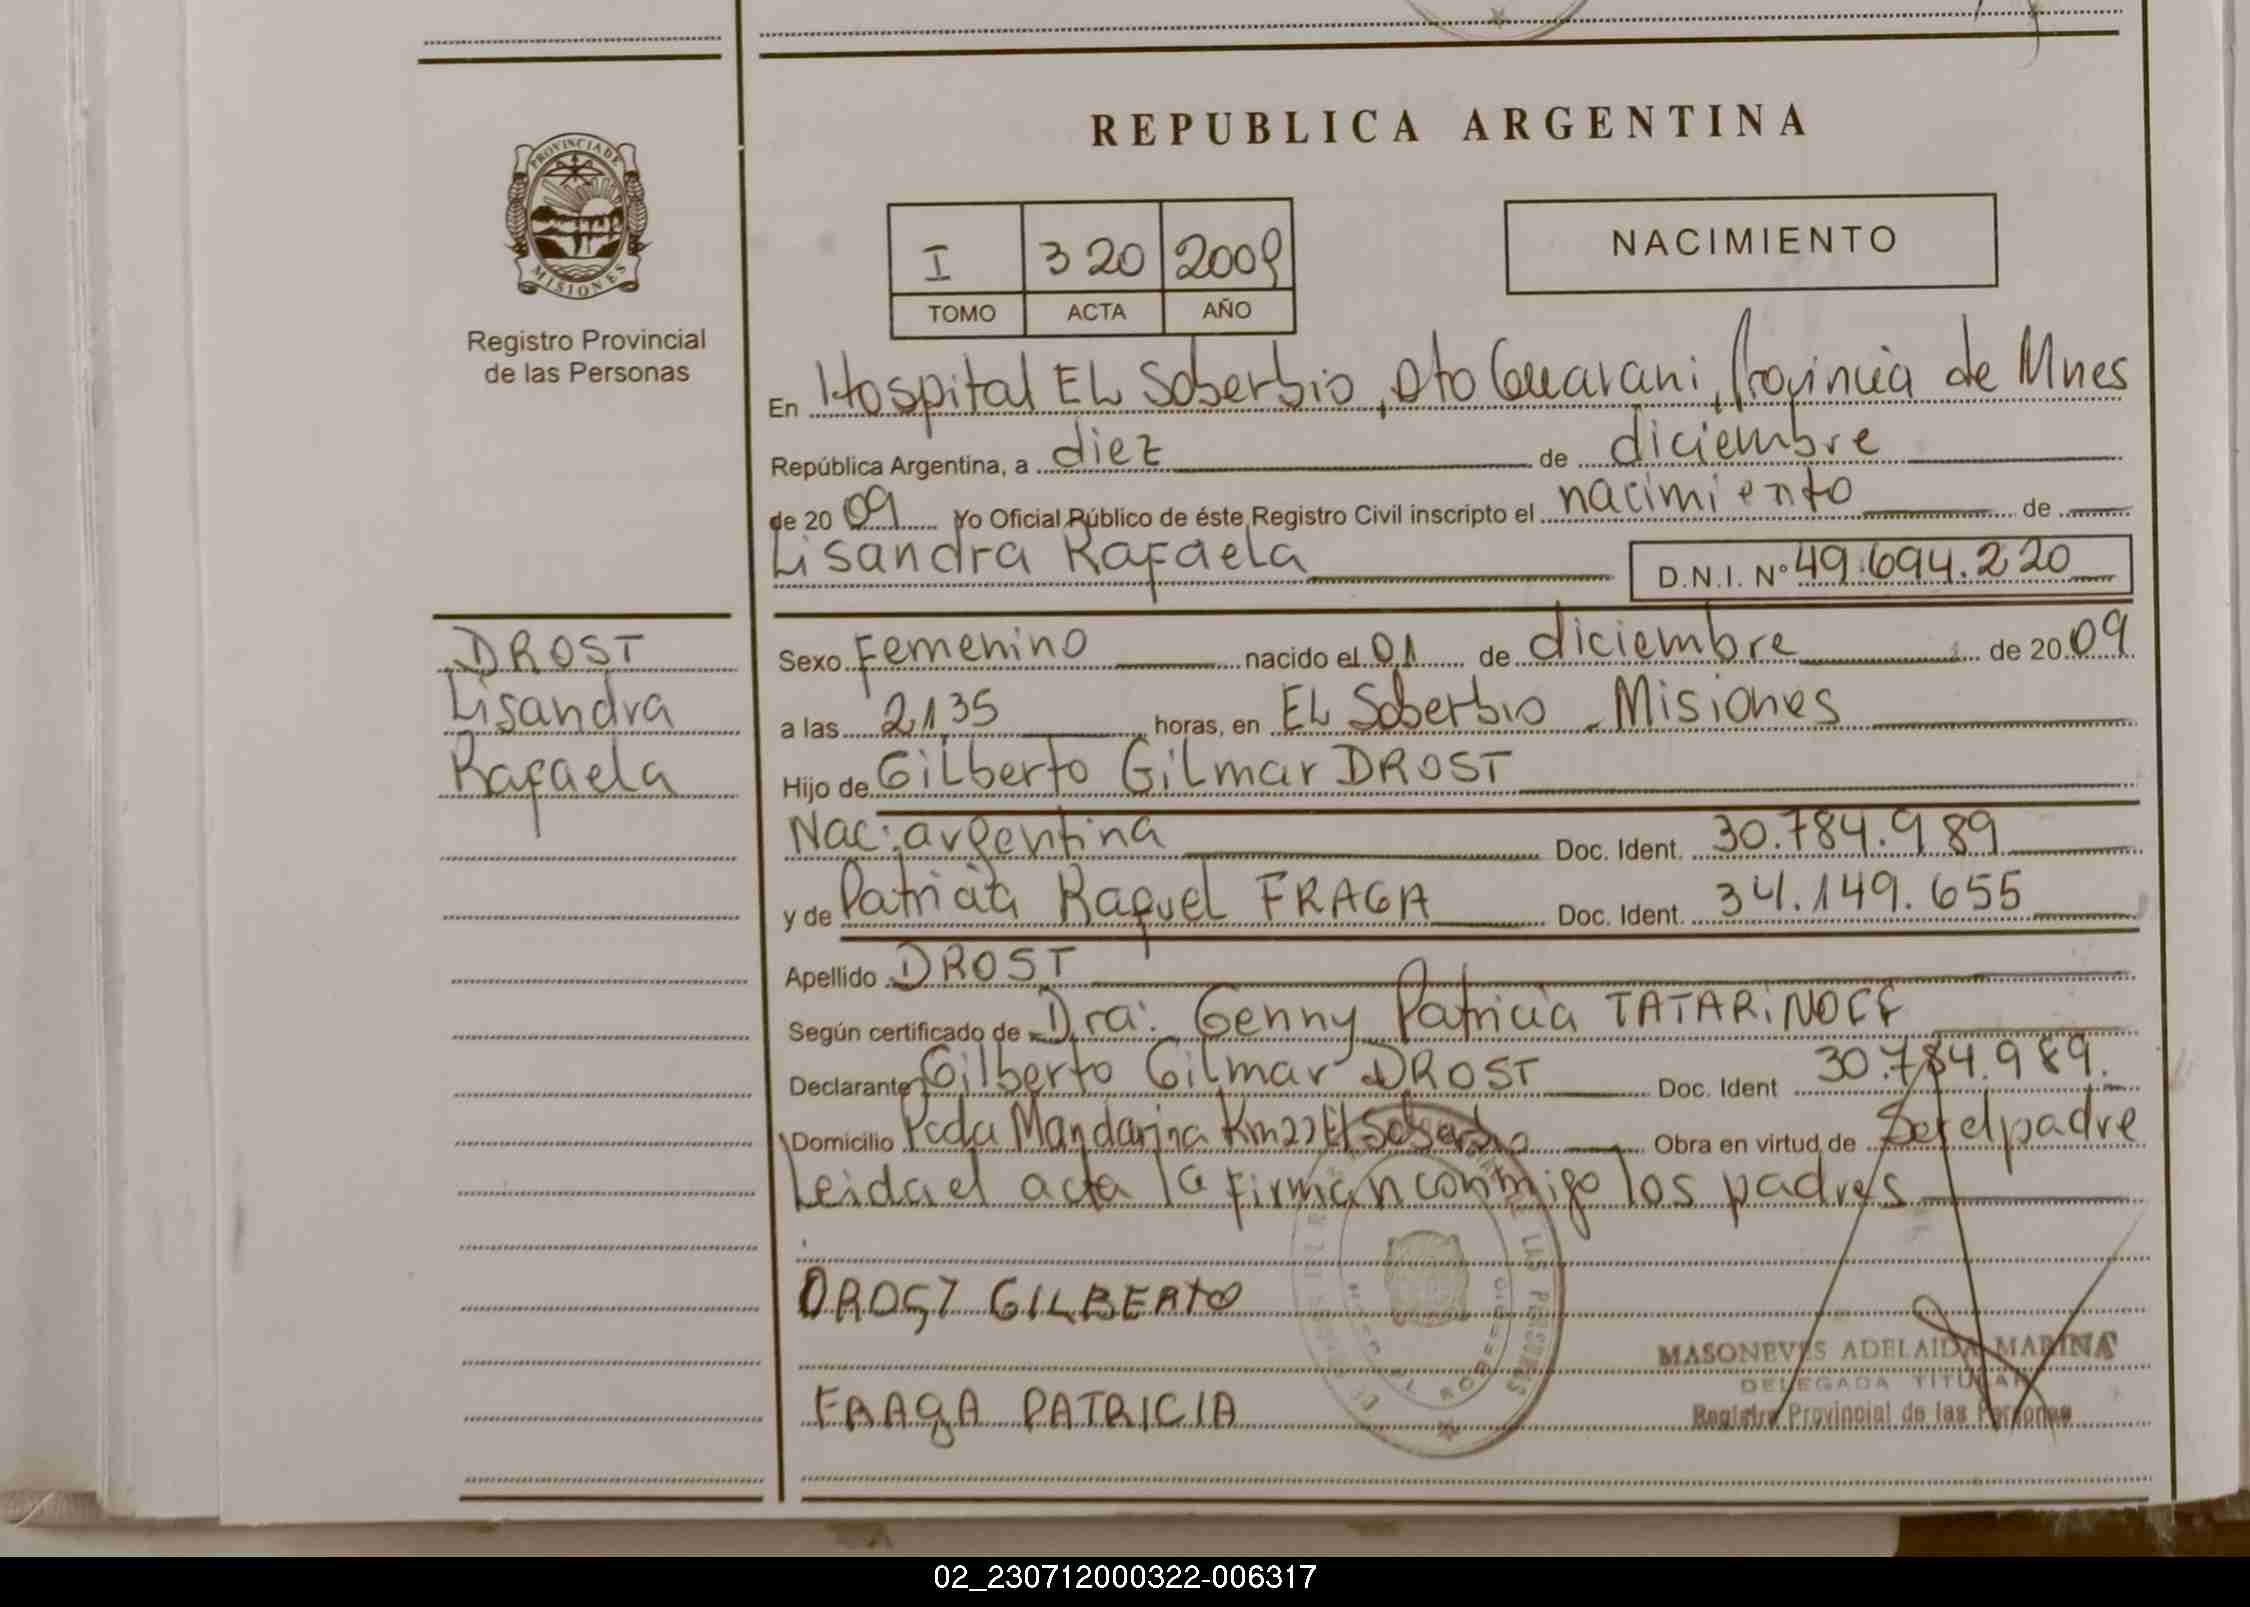 REPUBLICA ARGENTINA
PROVINCIA DE
MISIONES
Registro Provincial
de las Personas
I 320 2009
TOMO ACTA AÑO
NACIMIENTO
En Hospital EL Soberbio, Dto Guarani, Provincia de Mnes
República Argentina, a diez de diciembre
de 2009 Yo Oficial Público de éste Registro Civil inscripto el nacimiento de
Lisandra Rafaela D.N.I. N° 49.694.220
DROST
Lisandra
Rafaela
Sexo Femenino nacido el 01 de diciembre de 2009
a las 21,35 horas, en EL Soberbio - Misiones
Hijo de Gilberto Gilmar DROST
Nac: argentina Doc. Ident. 30.784.989
y de Patricia Raquel FRAGA Doc. Ident. 34.149.655
Apellido DROST
Según certificado de Dra: Genny Patricia TATARiNOFF
Declarante Gilberto Gilmar DROST Doc. Ident 30.784.989.
Domicilio Pcda Mandarina Km22 El Soberbio Obra en virtud de Ser el padre
Leida el acta la firman conmigo los padres
DROST GILBERTO
MASONEVES ADELAIDA MARINA
DELEGADA TITULAR
FRAGA PATRICIA Registro Provincial de las Personas
02_230712000322-006317